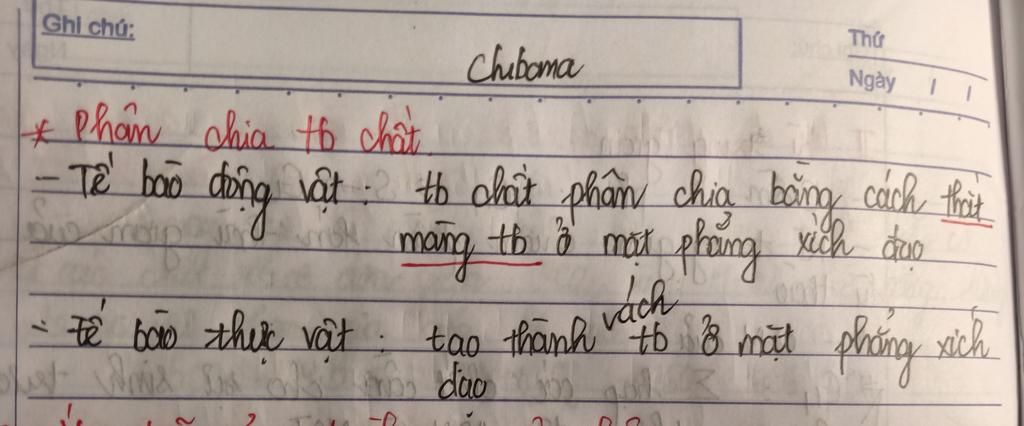 Ghi chú:
Thứ
Chuboma
Ngày / /
* Phân chia tb chất
- Tế bào động vật : tb chất phân chia bằng cách thắt
màng tb ở mặt phẳng xích đạo
- tế bào thực vật : tạo thành vách tb ở mặt phẳng xích
đạo